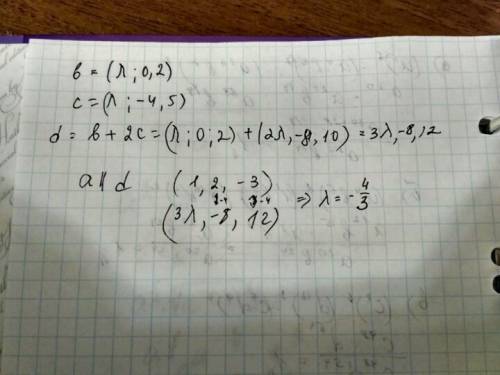 в = (λ ; 0, 2)
c = (λ ; -4, 5)
d = в + 2c = (λ ; 0 ; 2) + (2λ, -8, 10) = 3λ, -8, 12
a ∥ d (1, 2, -3)
·-4 ·-4 => λ = -4/3
(3λ, -8, 12)